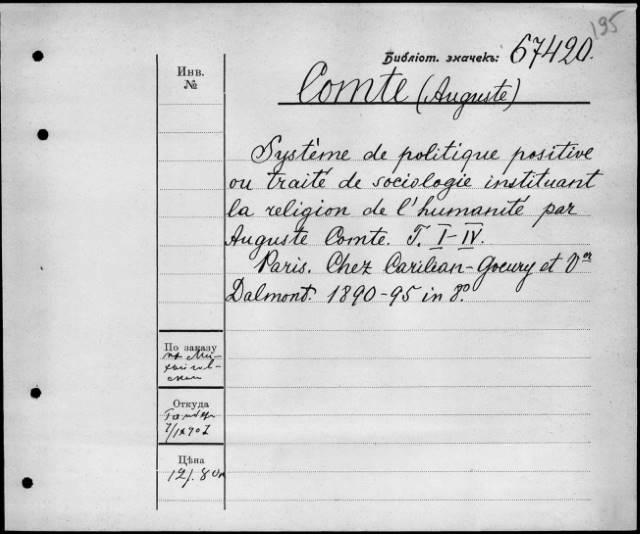 195
Библіот. значекъ: 67420.
Инв.
№
Comte (Auguste)
Système de politique positive
ou traité de sociologie instituant
la religion de l'humanité par
Auguste Comte. T. I-IV.
Paris. Chez Carilian-Goeury et Vor
Dalmont. 1890-95 in 8º.
По заказу
Откуда
Цѣна
12 р. 80 к